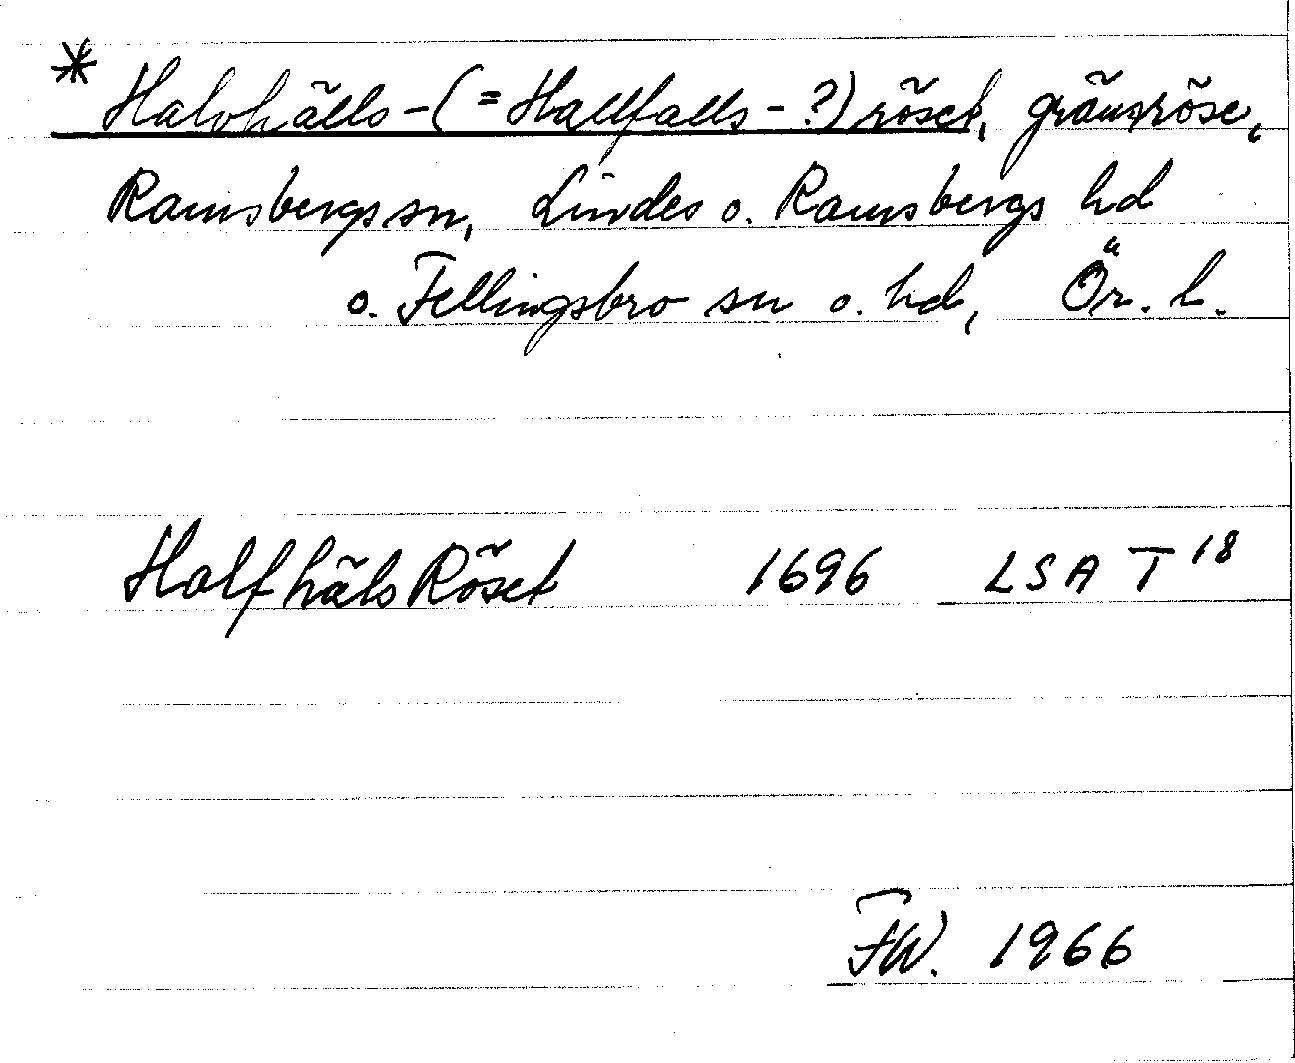 * Halvhälls-(=Hallfalls-?)röset, gränsröse,
Ramsbergs sn, Lindes o. Ramsbergs hd
o. Fellingsbro sn o. hd, Ör. l.
Halfhäls Röset 1696 LSA T 18
FW. 1966